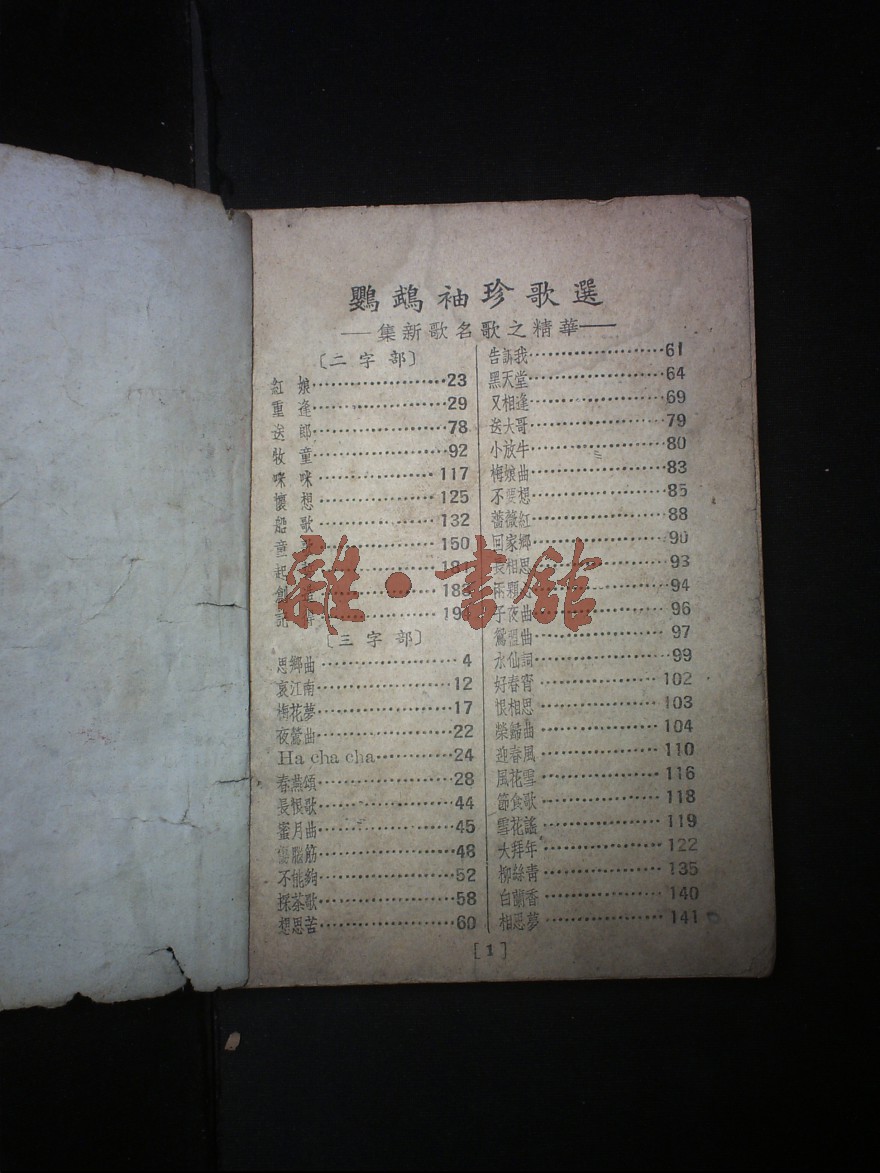 鸚鵡袖珍歌選
——集新歌名歌之精華——
〔二字部〕
紅娘…………23
重逢…………29
送郎…………78
牧童…………92
咪咪…………117
懷想…………125
船歌…………132
童…………150
起
創
記
〔三字部〕
思鄉曲…………4
哀江南…………12
梅花夢…………17
夜鶯曲…………22
Ha cha cha…………24
春燕頌…………28
長恨歌…………44
蜜月曲…………45
傷腦筋…………48
不能夠…………52
採茶歌…………58
想思苦…………60
告訴我…………61
黑天堂…………64
又相逢…………69
送大哥…………79
小放牛…………80
梅娘曲…………83
不要想…………85
薔薇紅…………88
回家鄉…………90
長相思…………93
兩顆…………94
子夜曲…………96
…………97
水仙詞…………99
好春宵…………102
恨相思…………103
榮歸曲…………104
迎春風…………110
風花雪…………116
節食歌…………118
雪花謠…………119
大拜年…………122
柳絲青…………135
白蘭香…………140
相思夢…………141
[1]
雜·書館